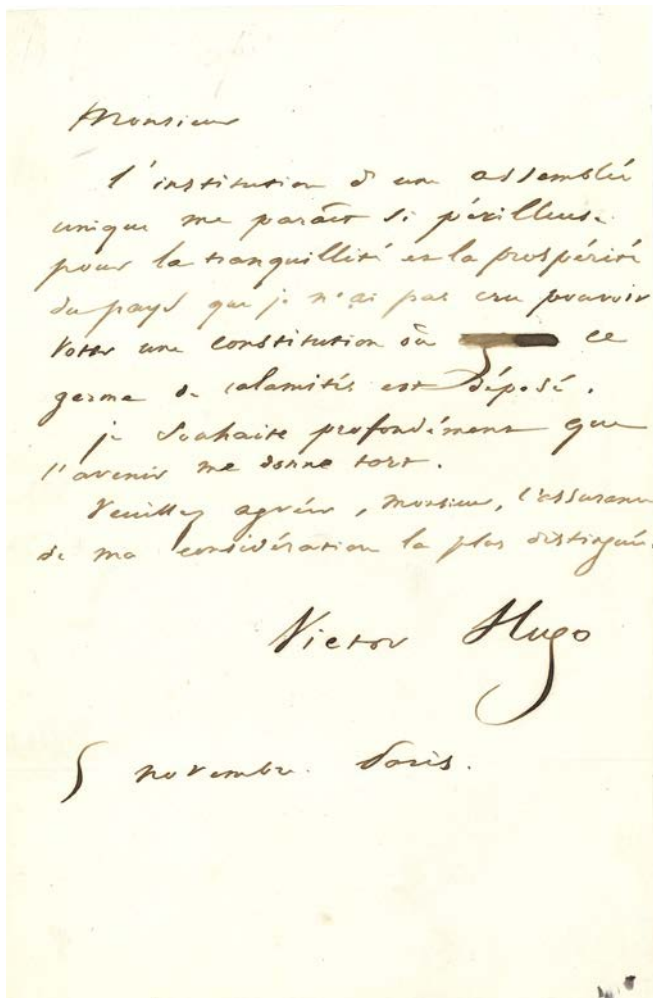 Monsieur
l'institution d'une assemblée
unique me paraît si périlleuse
pour la tranquillité et la prospérité
du pays que je n'ai pas cru pouvoir
voter une constitution où ce
germe de calamités est déposé.
je souhaite profondément que
l'avenir me donne tort.
Veuillez agréer, Monsieur, l'assurance
de ma considération la plus distinguée.
Victor Hugo
5 novembre. Paris.